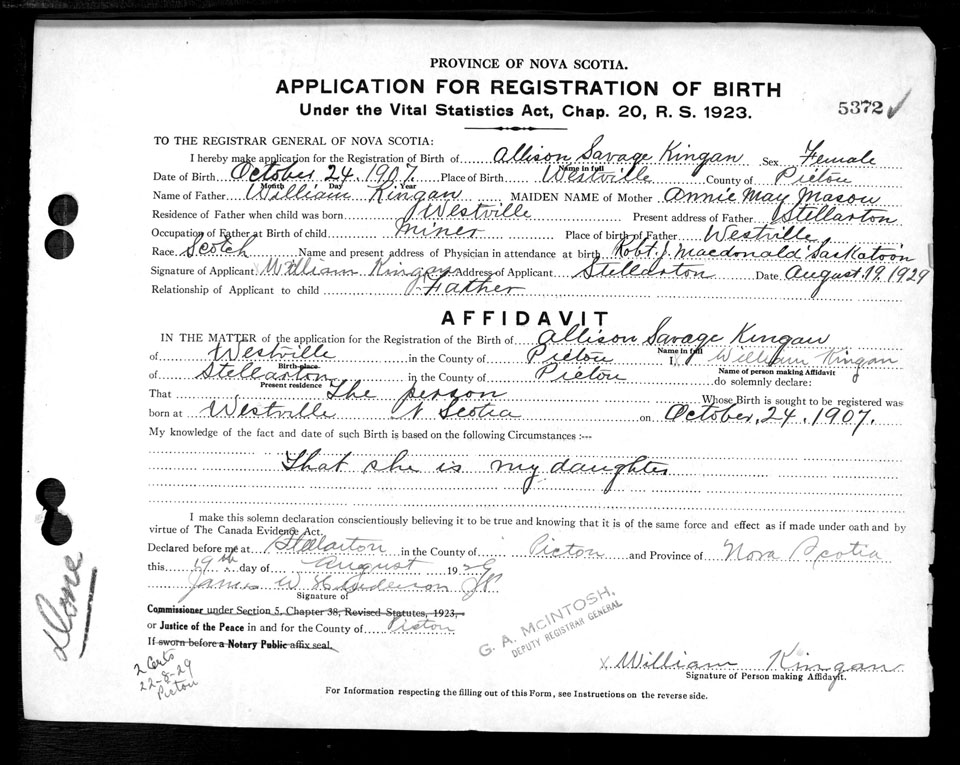 PROVINCE OF NOVA SCOTIA.
APPLICATION FOR REGISTRATION OF BIRTH
Under the Vital Statistics Act, Chap. 20, R. S. 1923.
5372
TO THE REGISTRAR GENERAL OF NOVA SCOTIA:
I hereby make application for the Registration of Birth of Allison Savage Kingan Sex Female
Name in full
Date of Birth October 24. 1907. Place of Birth Westville County of Pictou
Month Day Year
Name of Father William Kingan MAIDEN NAME of Mother Annie May Mason
Residence of Father when child was born Westville Present address of Father Stellarton
Occupation of Father at Birth of child Miner Place of birth of Father Westville
Race Scotch Name and present address of Physician in attendance at birth Robt. J. Macdonald Saskatoon
Signature of Applicant William Kingan Address of Applicant Stellarton Date August 19. 1929
Relationship of Applicant to child Father
AFFIDAVIT
IN THE MATTER of the application for the Registration of the Birth of Allison Savage Kingan
Name in full
of Westville in the County of Pictou I x William Kingan
Birth-place Name of person making Affidavit
of Stellarton in the County of Pictou do solemnly declare:
Present residence
That The person Whose Birth is sought to be registered was
born at Westville N Scotia on October, 24. 1907.
My knowledge of the fact and date of such Birth is based on the following Circumstances :---
That she is my daughter
I make this solemn declaration conscientiously believing it to be true and knowing that it is of the same force and effect as if made under oath and by
virtue of The Canada Evidence Act.
Declared before me at Stellarton in the County of Pictou and Province of Nova Scotia
this 19th day of August 1929
James W H Anderson JP
Signature of
Commissioner under Section 5, Chapter 38, Revised Statutes, 1923,
or Justice of the Peace in and for the County of Pictou
If sworn before a Notary Public affix seal.
G. A. McINTOSH,
DEPUTY REGISTRAR GENERAL
Done
2 Certs
22-8-29
Pictou
x William Kingan
Signature of Person making Affidavit.
For Information respecting the filling out of this Form, see Instructions on the reverse side.